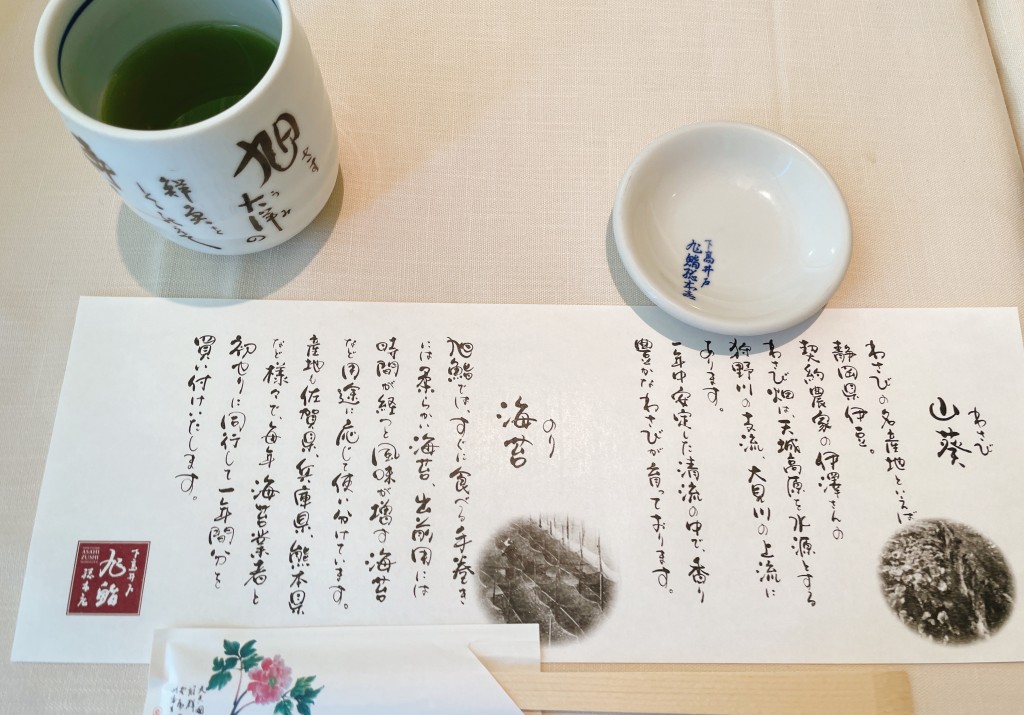 旭
大洋の
鮮
下高井戸
旭鮨総本店
わさび
山葵
わさびの名産地といえば
静岡県伊豆。
契約農家の伊澤さんの
わさび畑は天城高原を水源とする
狩野川の支流、大見川の上流に
あります。
一年中安定した清流の中で、香り
豊かなわさびが育っております。
のり
海苔
旭鮨では、すぐに食べる手巻き
には柔らかい海苔、出前用には
時間が経つと風味が増す海苔
など用途に応じて使い分けています。
産地も佐賀県、兵庫県、熊本県
など様々で、毎年海苔業者と
初セリに同行して一年間分を
買い付けいたします。
ASAHI
ZUSHI
下高井戸
旭鮨
総本店